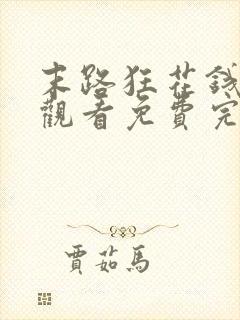 末路狂花錢
觀看免費完
賈茹馬